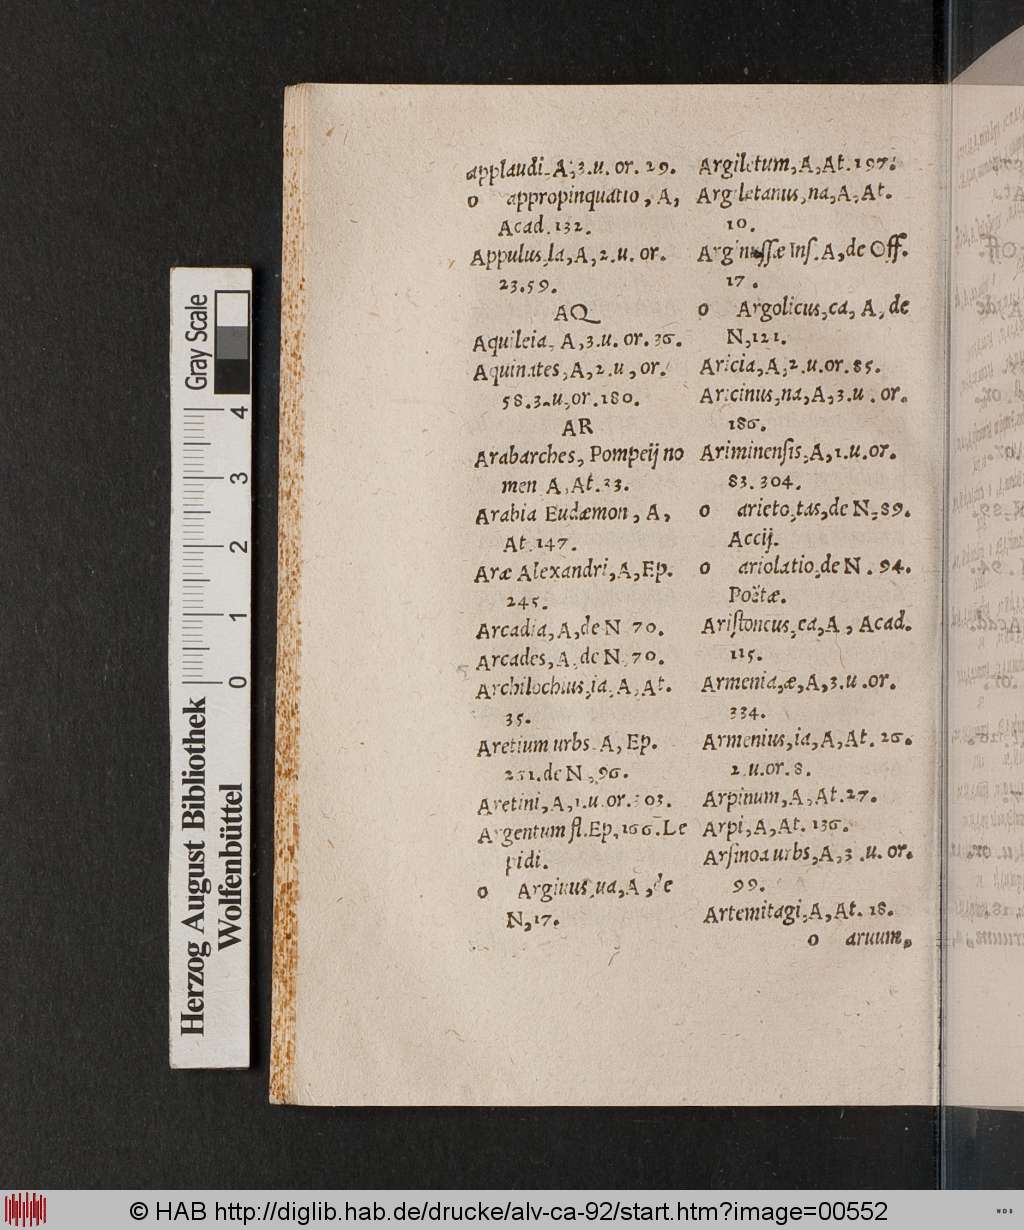 applaudi. A, 3.u. or. 29.
o appropinquatio, A,
Acad. 132.
Appulus, la, A, 2.u. or.
23.59.
AQ
Aquileia, A, 3.u. or. 36.
Aquinates, A, 2.u, or.
58.3.u, or. 180.
AR
Arabarches, Pompeij no
men A, At. 33.
Arabia Eudæmon, A,
At. 147.
Aræ Alexandri, A, Ep.
245.
Arcadia, A, de N 70.
Arcades, A, de N, 70.
Archilochius, ia, A, At.
35.
Aretium urbs. A, Ep.
231. de N, 96.
Aretini, A, 1.u. or. 303.
Argentum fl. Ep, 166. Le
pidi.
o Argiuus, ua, A, de
N, 17.
Argiletum, A, At. 197.
Argiletanus, na, A, At.
10.
Arginussæ Ins. A, de Off.
17.
o Argolicus, ca, A, de
N, 121.
Aricia, A, 2.u. or. 85.
Aricinus, na, A, 3.u. or.
186.
Ariminensis, A, 1.u. or.
83.304.
o arieto, tas, de N, 89.
Accij.
o ariolatio, de N. 94.
Poëtæ.
Aristoneus, ea, A, Acad.
115.
Armenia, æ, A, 3.u. or.
334.
Armenius, ia, A, At. 26.
2.u. or. 8.
Arpinum, A, At. 27.
Arpi, A, At. 136.
Arsinoa urbs, A, 3.u. or.
99.
Artemitagi, A, At. 18.
o aruum,
Gray Scale
4
3
2
1
0
Herzog August Bibliothek
Wolfenbüttel
© HAB http://diglib.hab.de/drucke/alv-ca-92/start.htm?image=00552
WDB